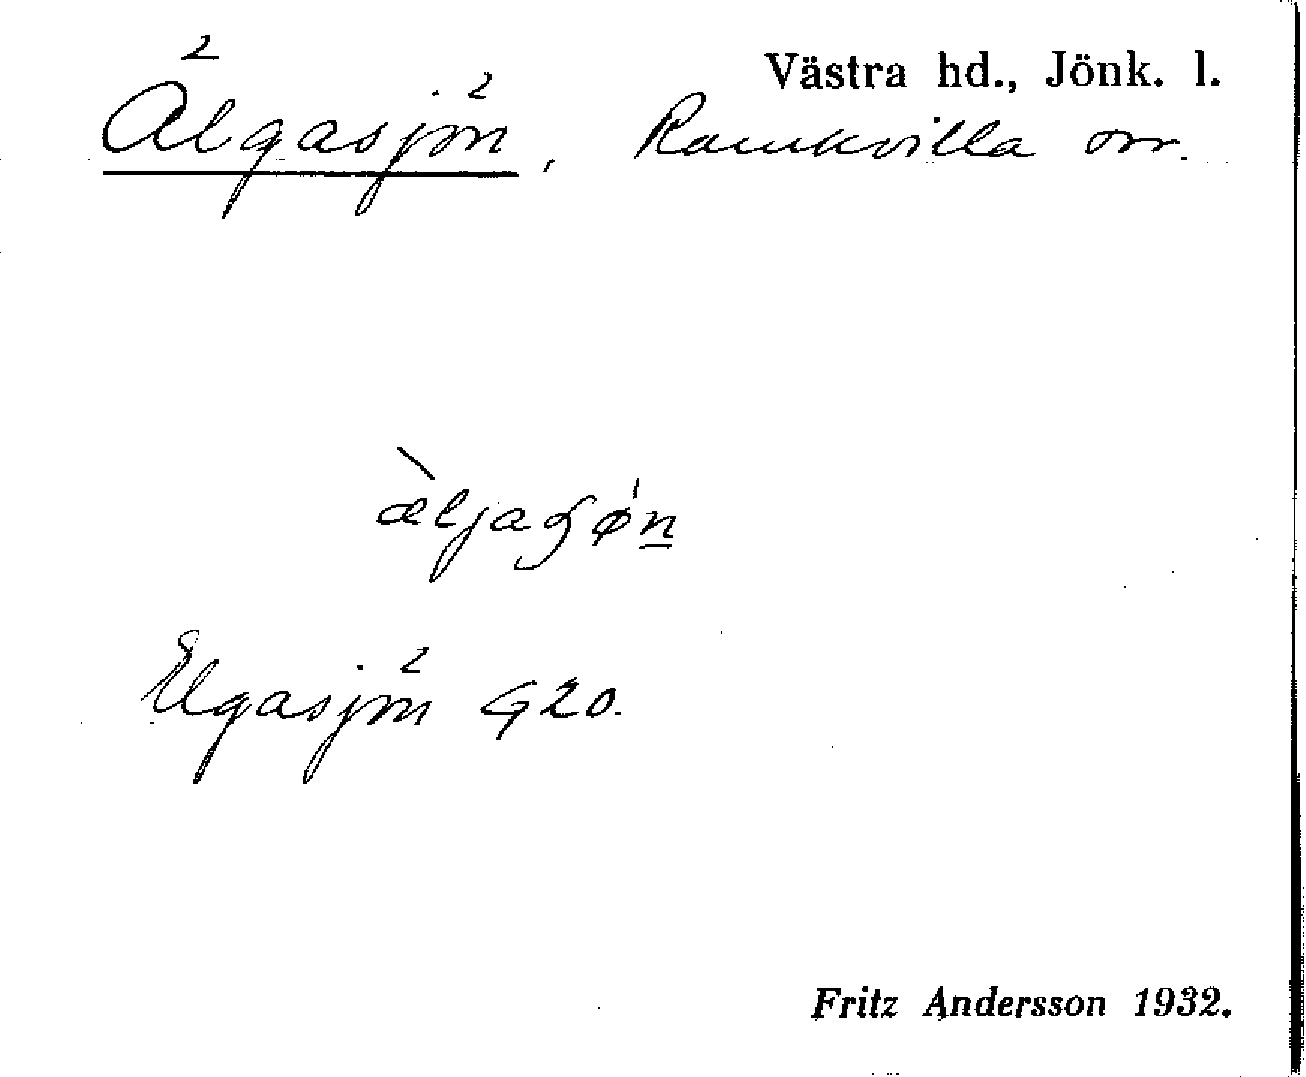 Västra hd., Jönk. l.
Älgasjön, Ramkvilla sn.
æ̀ljaʃǿn
Elgasjön G20.
Fritz Andersson 1932.